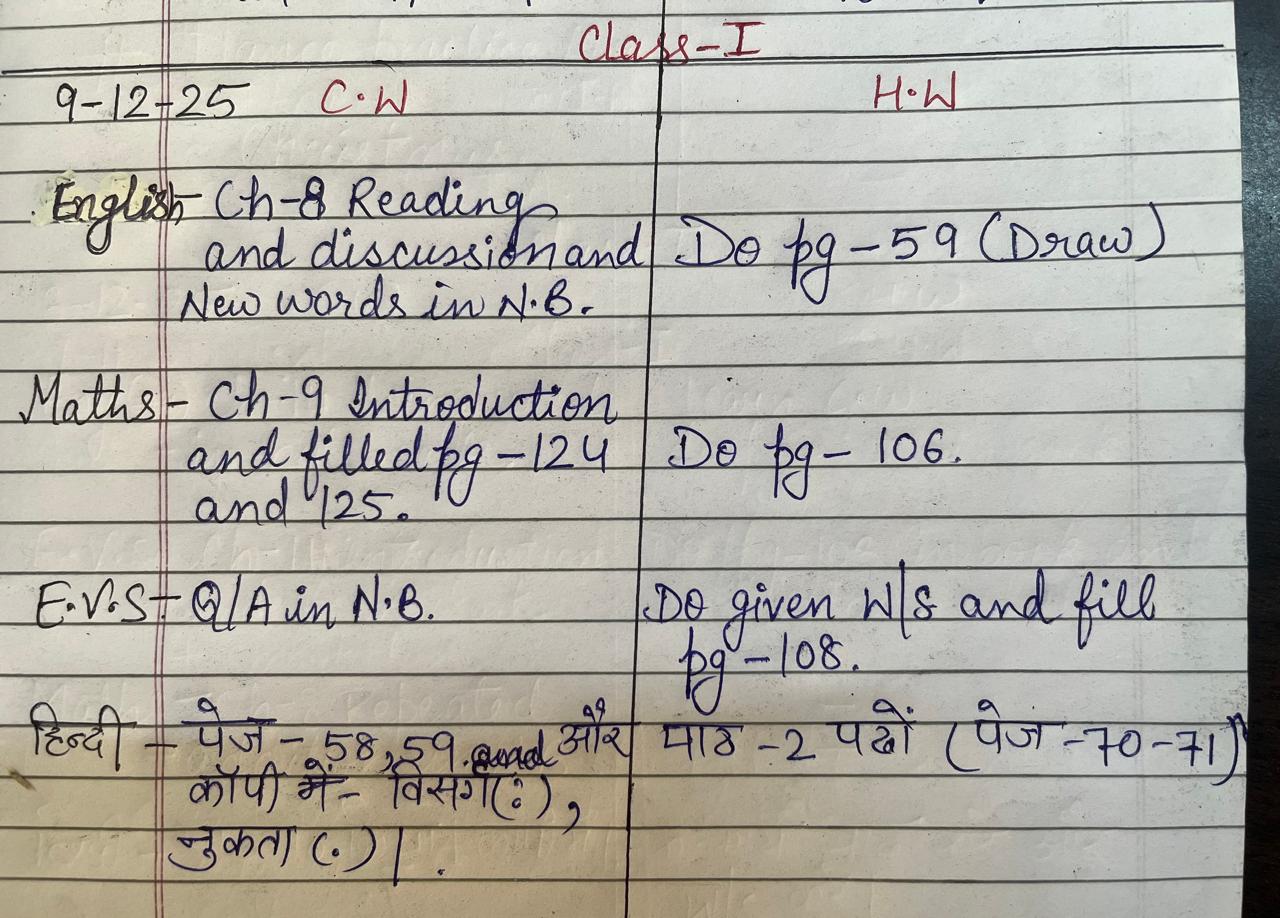 Class-I
9-12-25 C.W H.W
English- Ch-8 Reading
and discussion and Do pg-59 (Draw)
New words in N.B.
Maths- Ch-9 Introduction
and filled pg-124 Do pg- 106.
and 125.
E.V.S- Q/A in N.B. Do given W/S and fill
pg-108.
हिन्दी - पेज - 58, 59. और पाठ -2 पढों (पेज -70-71)
कॉपी में- विसर्ग(:),
नुकता (.) |.